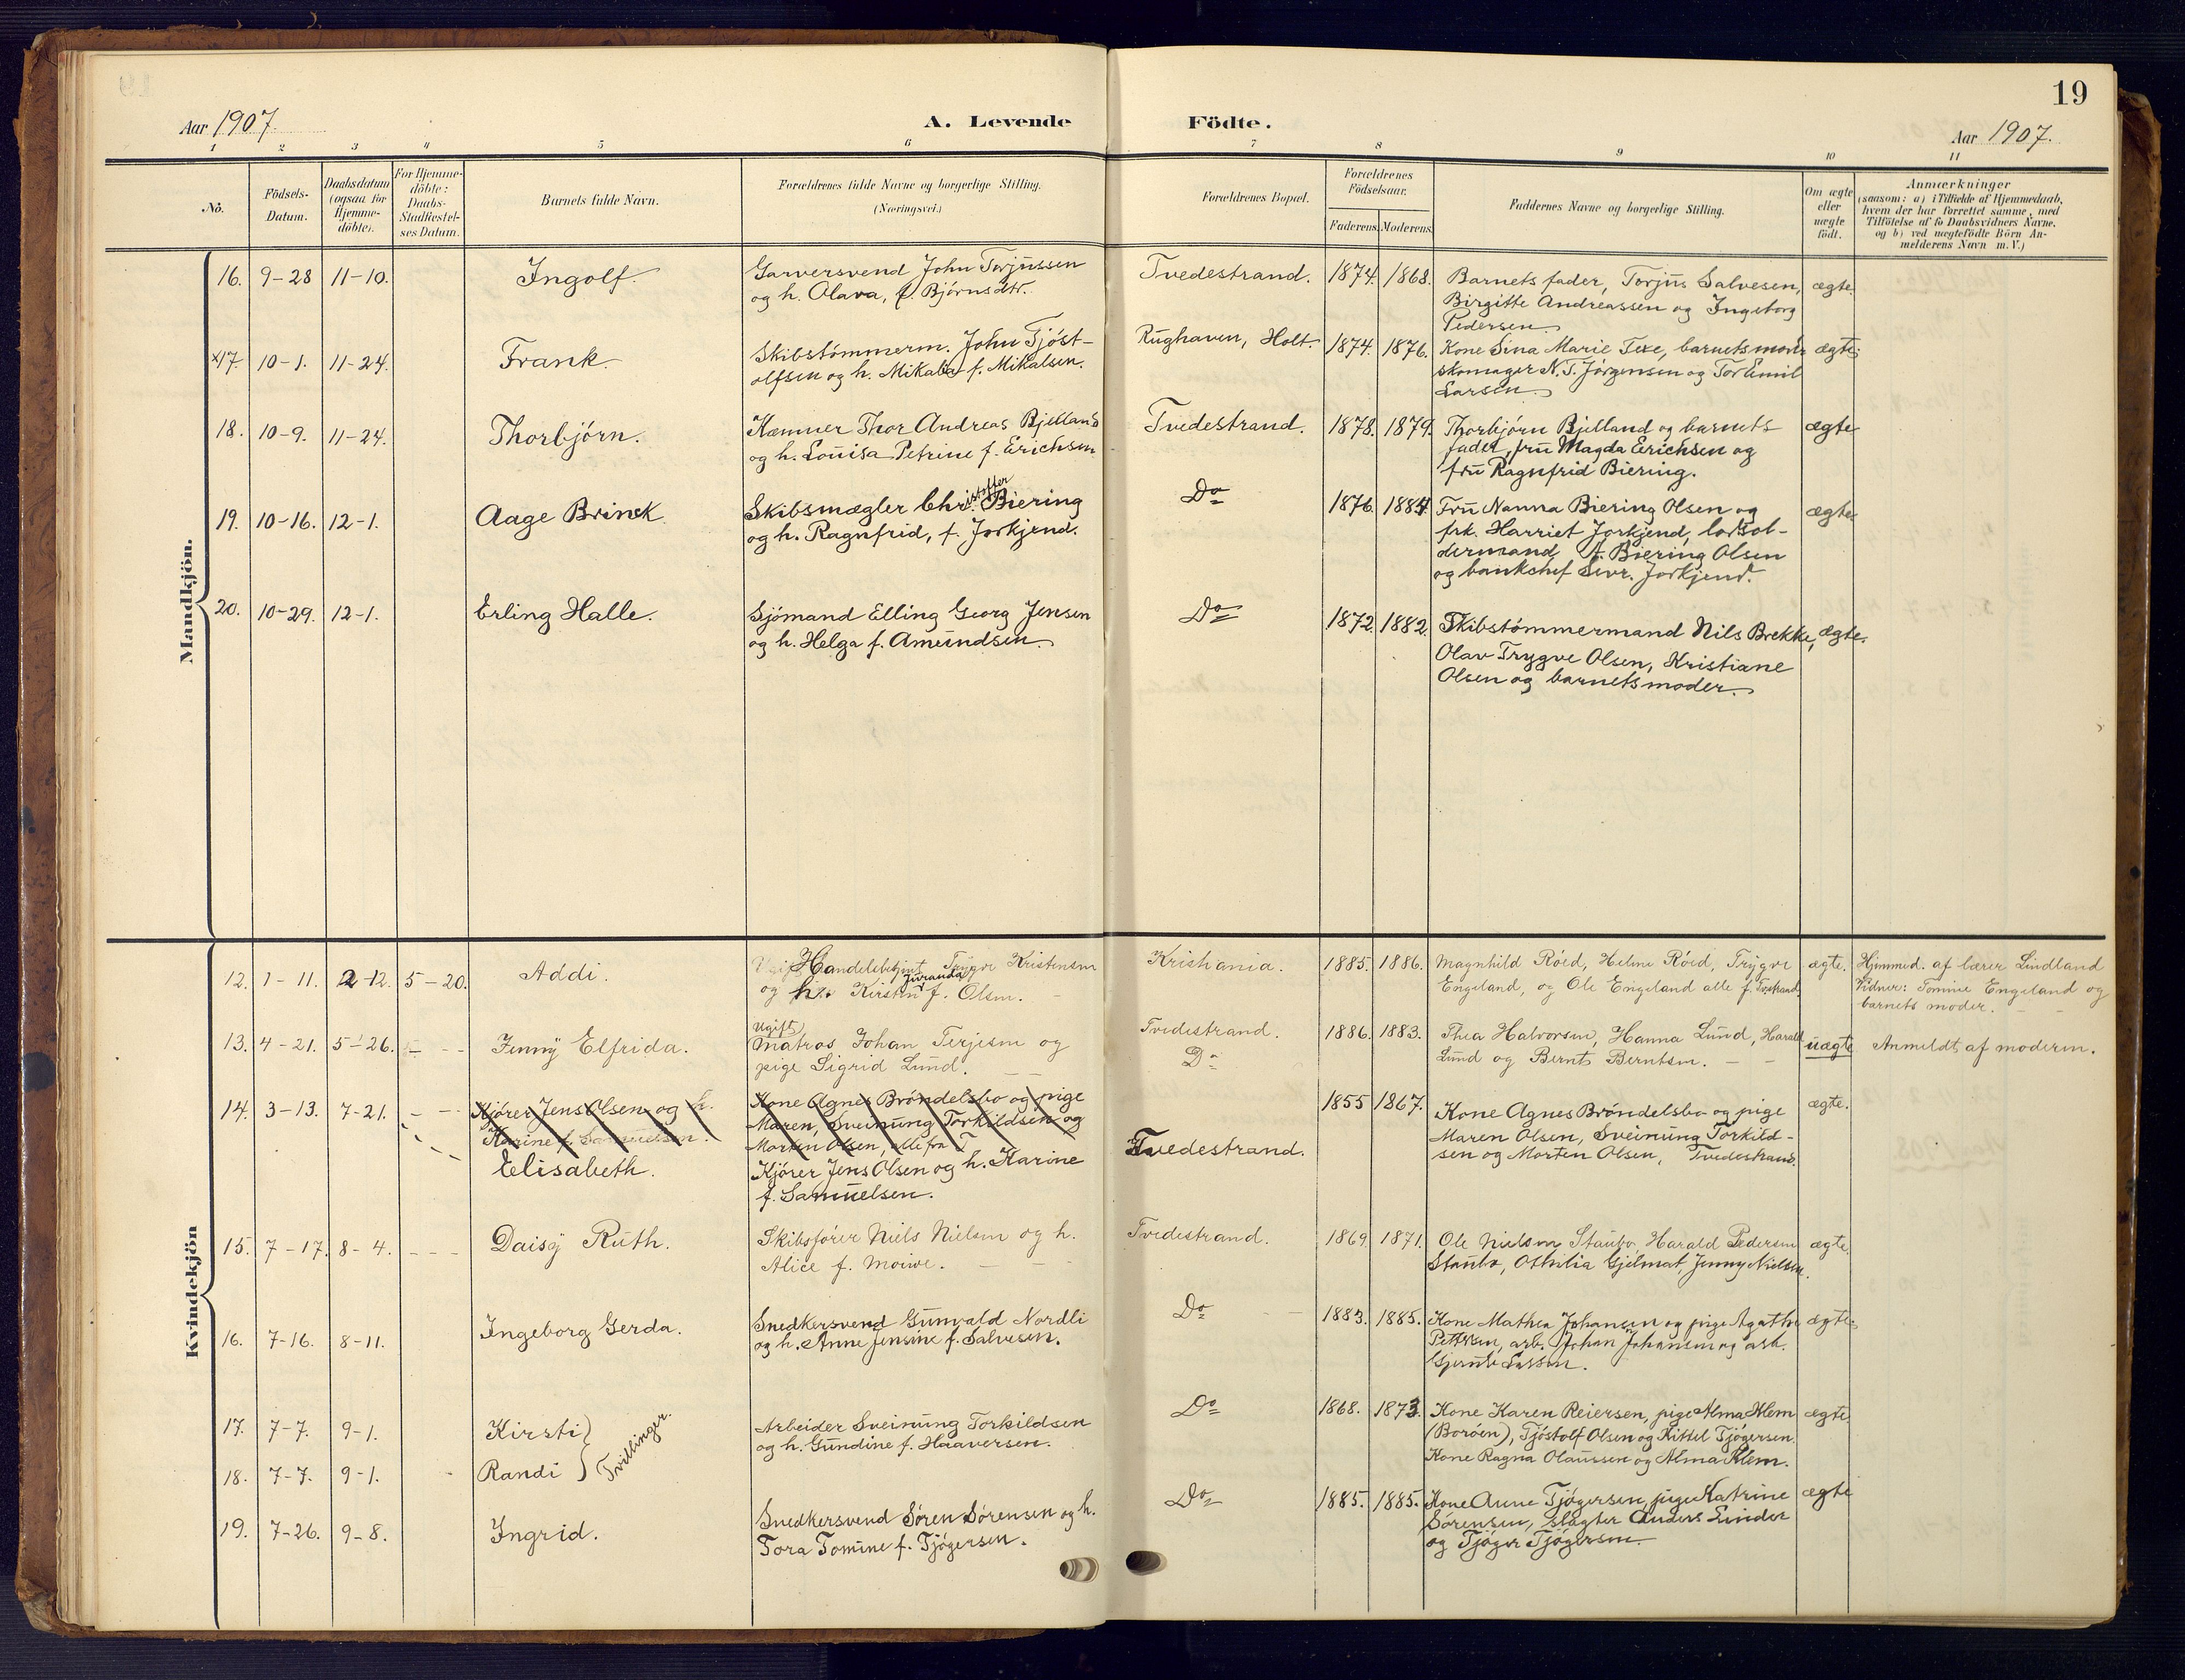 19
Aar 1907.
A. Levende Födte.
Aar 1907.
1 2 3 4 5 6 7 8 9 10 11
No.
Födsels-Datum.
Daabsdatum (ogsaa for Hjemme-döbte).
For Hjemme-döbte: Daabs-Stadfæstel-ses Datum.
Barnets fulde Navn.
Forældrenes fulde Navne og borgerlige Stilling. (Næringsvei.)
Forældrenes Bopæl.
Forældrenes Födselsaar.
Faderens. Moderens.
Faddernes Navne og borgerlige Stilling.
Om ægte eller uægte födt.
Anmærkninger
(saasom: a) i Tilfælde af Hjemmedaab,
hvem der har forrettet samme, med
Tilföielse af to Daabsvidners Navne,
og b) ved uægtefödte Börn An-
melderens Navn m. V.)
Mandkjön.
16. 9-28 11-10. Ingolf.
Garversvend John Torjussen
og h. Olava, f. Bjørnsdtr.
Tvedestrand. 1874. 1868.
Barnets fader, Torjus Salvesen,
Birgitte Andreassen og Ingeborg
Pedersen.
ægte.
x17. 10-1. 11-24. Frank.
Skibstømmerm. John Tjøst-
olfsen og h. Mikalia f. Mikalsen.
Rughaven, Holt. 1874. 1876.
Kone Sina Marie Texe, barnets moder
skomager N. T. Jørgensen og Tor Emil
Larsen.
ægte.
18. 10-9. 11-24. Thorbjørn.
Kæmner Thor Andreas Bjelland
og h. Louisa Petrine f. Erichsen
Tvedestrand. 1878. 1879.
Thorbjørn Bjelland og barnets
fader, fru Magda Erichsen og
fru Ragnfrid Biering.
ægte
19. 10-16. 12-1. Aage Brinck.
Skibsmægler Christoffer Biering
og h. Ragnfrid, f. Jorkjend.
Do 1876. 1884.
Fru Nanna Biering Olsen og
frk. Harriet Jorkjend, lodsol-
dermand A. Biering Olsen
og bankchef Sevr. Jorkjend.
ægte
20. 10-29. 12-1. Erling Halle.
Sjømand Elling Georg Jensen
og h. Helga f. Amundsen.
Do 1872. 1882.
Skibstømmermand Nils Brekke,
Olav Trygve Olsen, Kristiane
Olsen og barnets moder.
ægte.
Kvindekjön
12. 1-11. 2-12. 5-20. Addi.
Handelsbetjent Trygve Kristensen
og h. Kirsten Juranda f. Olsen.
Kristiania. 1885. 1886.
Magnhild Røed, Helme Røed, Trygve
Engeland, og Ole Engeland alle f. Tvestrand.
ægte.
Hjemmed. af lærer Lindland
Vidner: Tomine Engeland og
barnets moder.
13. 4-21. 5-26. Jenny Elfrida.
Ugift
matros Johan Terjesen og
pige Sigrid Lund.
Tvedestrand.
Do
1886. 1883.
Thea Halvorsen, Hanna Lund, Harald
Lund og Bernt Berntsen.
uægte
Anmeldt af moderen.
14. 3-13. 7-21.
Kjører Jens Olsen og h.
Karine f. Samuelsen.
Elisabeth.
Kone Agnes Brøndelsbo og pige
Maren, Sveinung Torkildsen og
Morten Olsen, alle fra T
Kjører Jens Olsen og h. Karine
f. Samuelsen.
Tvedestrand.
1855 1867.
Kone Agnes Brøndelsbo og pige
Maren Olsen, Sveinung Torkild-
sen og Morten Olsen, Tvedestrand.
ægte.
15. 7-17. 8-4. Daisy Ruth.
Skibsfører Niels Nielsen og h.
Alice f. Moiwe.
Tvedestrand. 1869. 1871.
Ole Nielsen Staubo, Harald Pedersen
Staubo, Othilia Gjelmat, Jenny Nielsen.
ægte.
16. 7-16. 8-11. Ingeborg Gerda.
Snedkersvend Gunvald Nordli
og h. Anne Jensine f. Salvesen.
Do 1883. 1885.
Kone Mathea Johansen og pige Agathe
Pettersen, arb. Johan Johansen og arb.
Gjeruls Lassen.
ægte.
17. 7-7. 9-1. Kirsti
18. 7-7. 9-1. Randi
Tvillinger.
Arbeider Sveinung Torkildsen
og h. Gundine f. Haaversen.
Do 1868. 1873.
Kone Karen Reiersen, pige Alma Klem
(Borøen), Tjøstolf Olsen og Kittel Tjøgersen.
Kone Ragna Olaussen og Alma Klem.
ægte.
19. 7-26. 9-8. Ingrid.
Snedkersvend Søren Sørensen og h.
Tora Tomine f. Tjøgersen.
Do 1885. 1885.
Kone Anne Tjøgersen, pige Katrine
Sørensen, slagter Anders Linder
og Tjøger Tjøgersen.
ægte